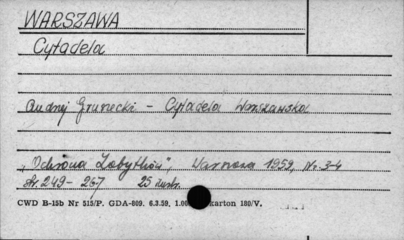 WARSZAWA
Cytadela
Andrzej Gruszecki - Cytadela Warszawska
"Ochrona Zabytków", Warszawa 1959, Nr. 3-4
str. 249 - 267 25 ilustr.
CWD B-15b Nr 513/P. GDA-809. 6.3.59. 1.00 karton 180/V.